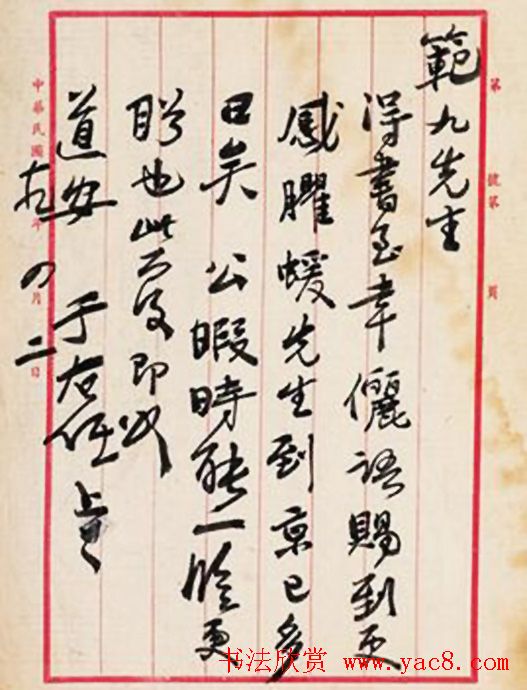 範九先生
得書至幸儷語賜到更
感臞蝯先生到京已多
日矣 公暇時能一臨更
盼也此覆即頌
道安 于右任 上
四月二日
中華民國 年 月 日
第 號第 頁
书法欣赏 www.yac8.com